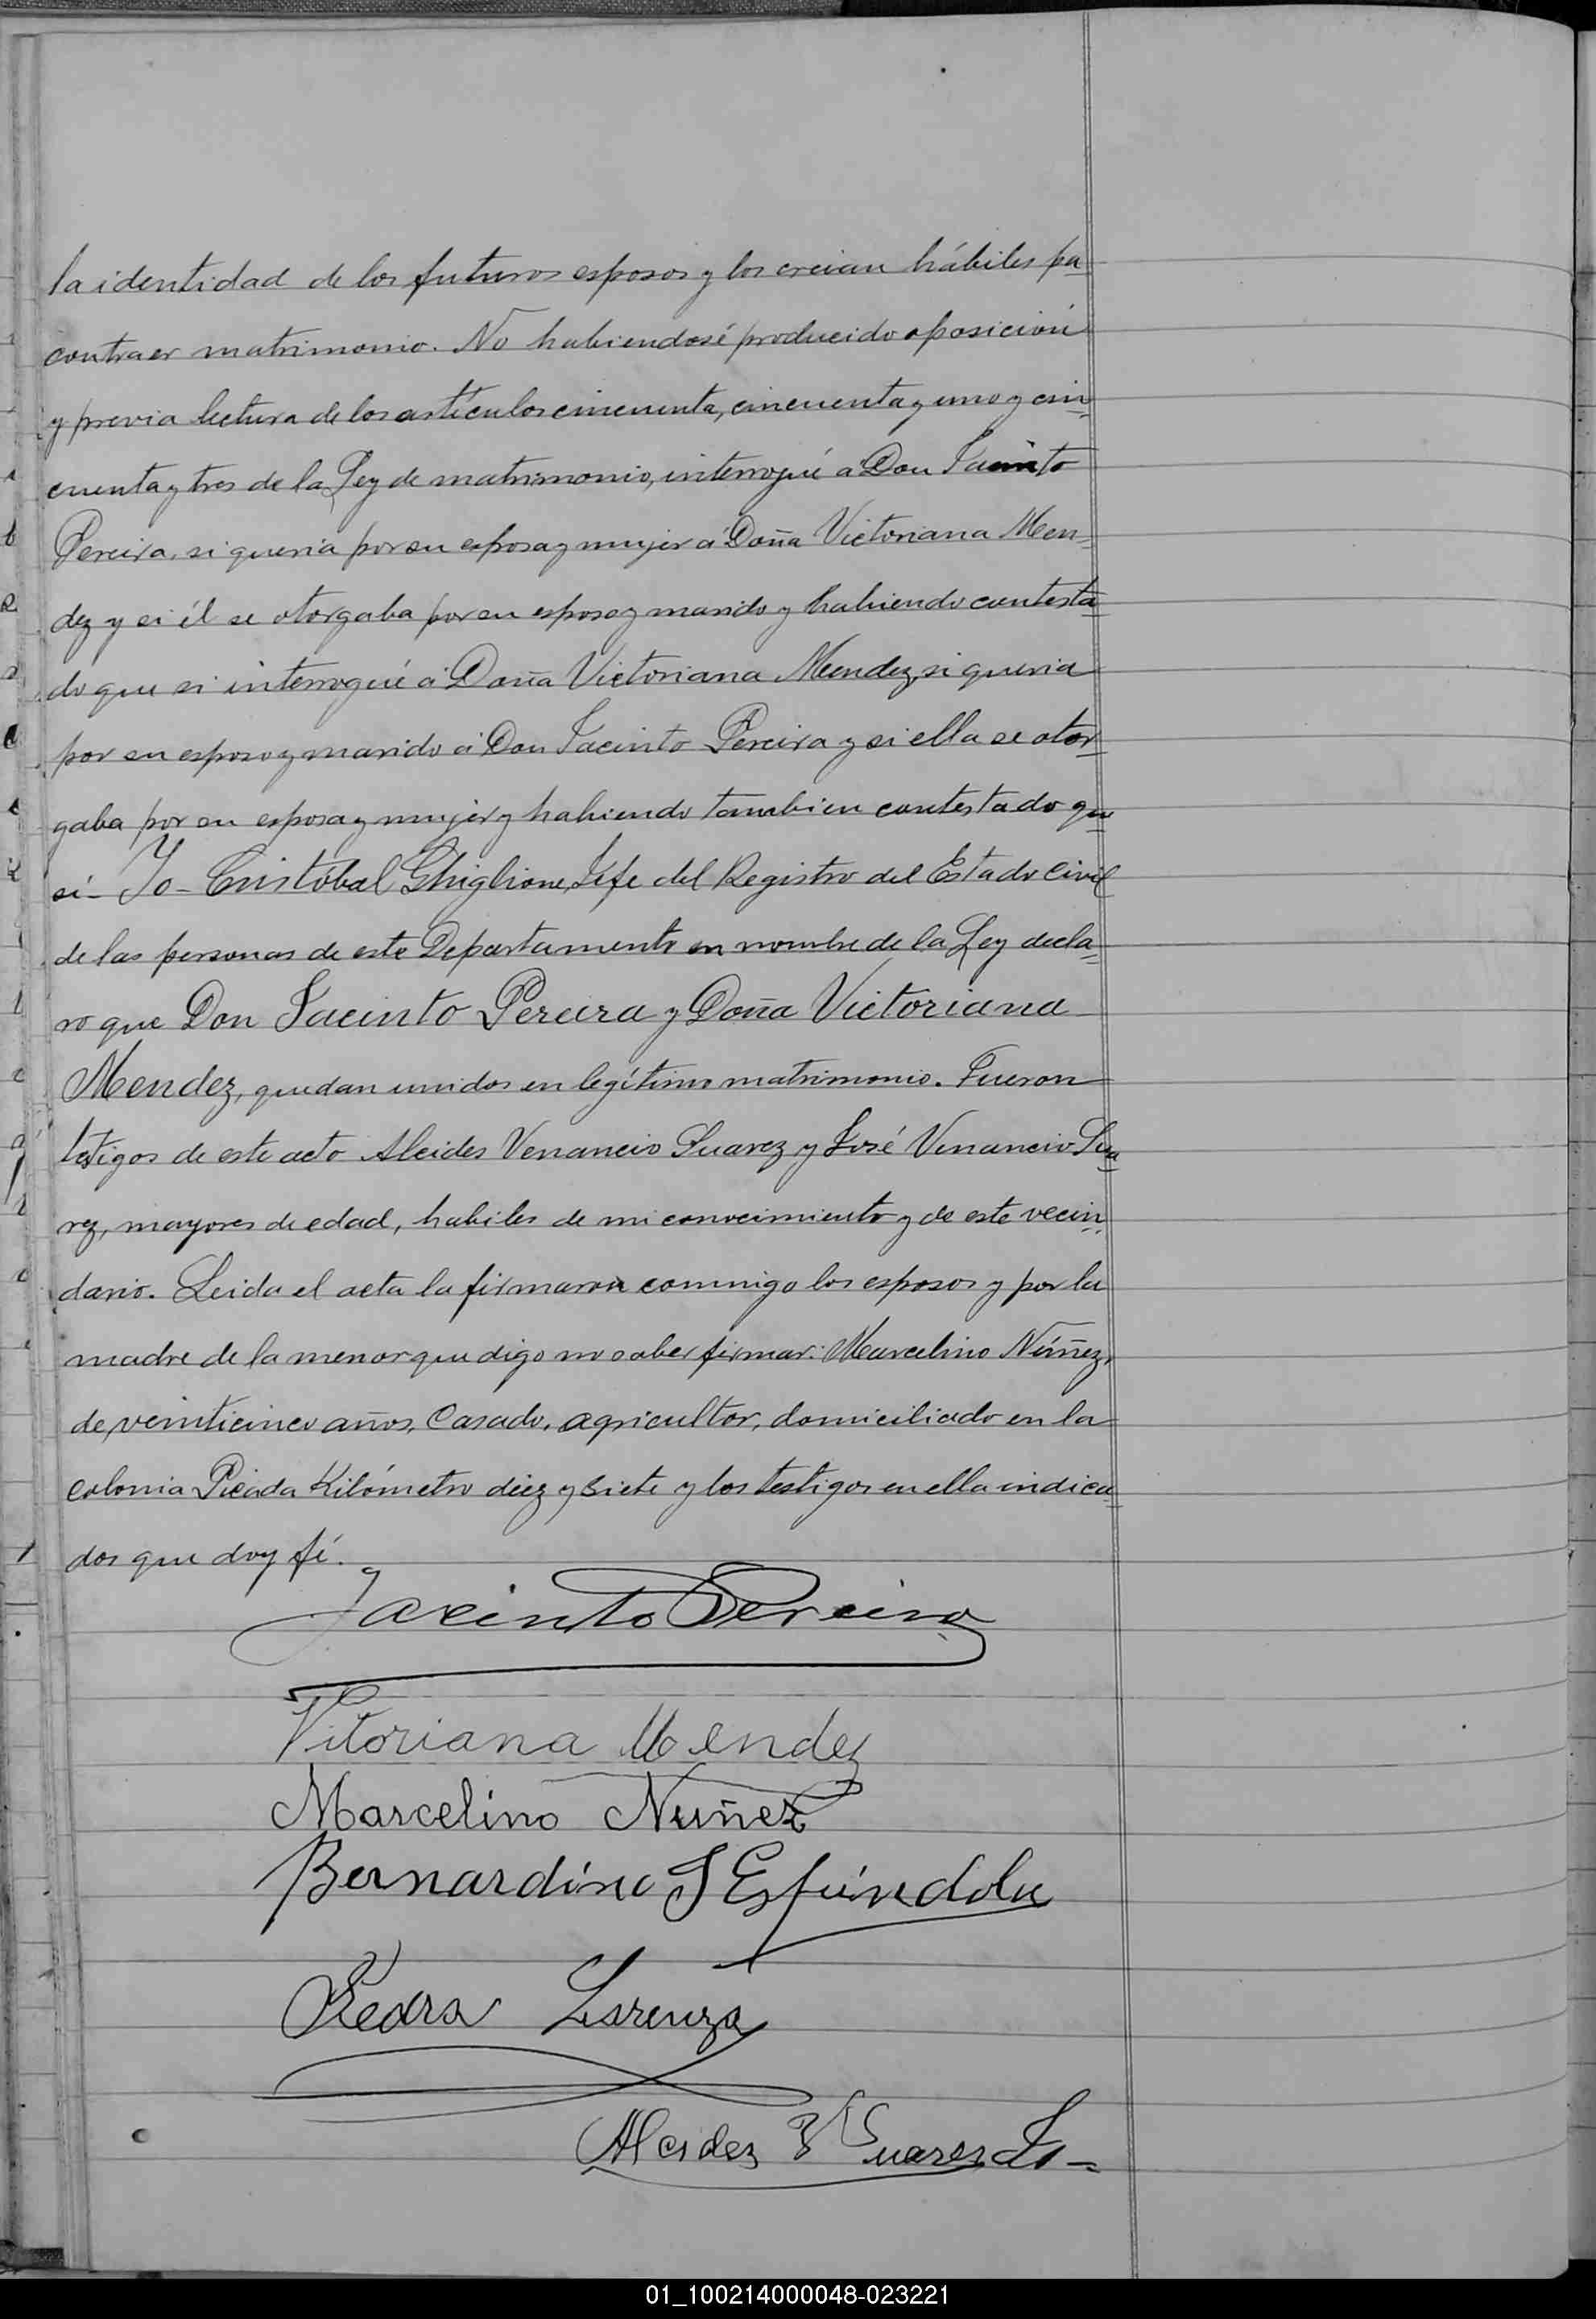 la identidad de los futuros esposos y los creian hábiles pa
contraer matrimonio. No habiendosé producido oposición
y previa lectura de los artículos cincuenta, cincuenta y uno y cin
cuenta y tres de la Ley de matrimonio, interrogué a Don Jacinto
Pereira, si queria por su esposa y mujer á Doña Victoriana Men
dez y si él se otorgaba por su esposo y marido y habiendo contesta
do que si interrogué á Doña Victoriana Mendez, si queria
por su esposo y marido á Don Jacinto Pereira y si ella se otor
gaba por su esposa y mujer y habiendo tambien contestado que
sí- Yo- Cristóbal Ghiglione, Jefe del Registro del Estado Civil
de las personas de este Departamento en nombre de la Ley decla
ro que Don Jacinto Pereira y Doña Victoriana
Mendez, quedan unidos en legítimo matrimonio. Fueron
testigos de este acto Alcides Venancio Suarez y José Venancio Sua
rez, mayores de edad, habiles de mi conocimiento y de este vecin
dario. Leida el acta la firmaron conmigo los esposos y por la
madre de la menor que digo no saber firmar: Marcelino Núñez,
de veinticinco años, Casado, agricultor, domiciliado en la
colonia Picada Kilómetro diez y siete y los testigos en ella indica
dos que doy fé.
Jacinto Pereira
Vitoriana Mendez
Marcelino Nuñez
Bernardino J Espíndola
Pedra Lorenza
Alcides V Suarez
01_100214000048-023221